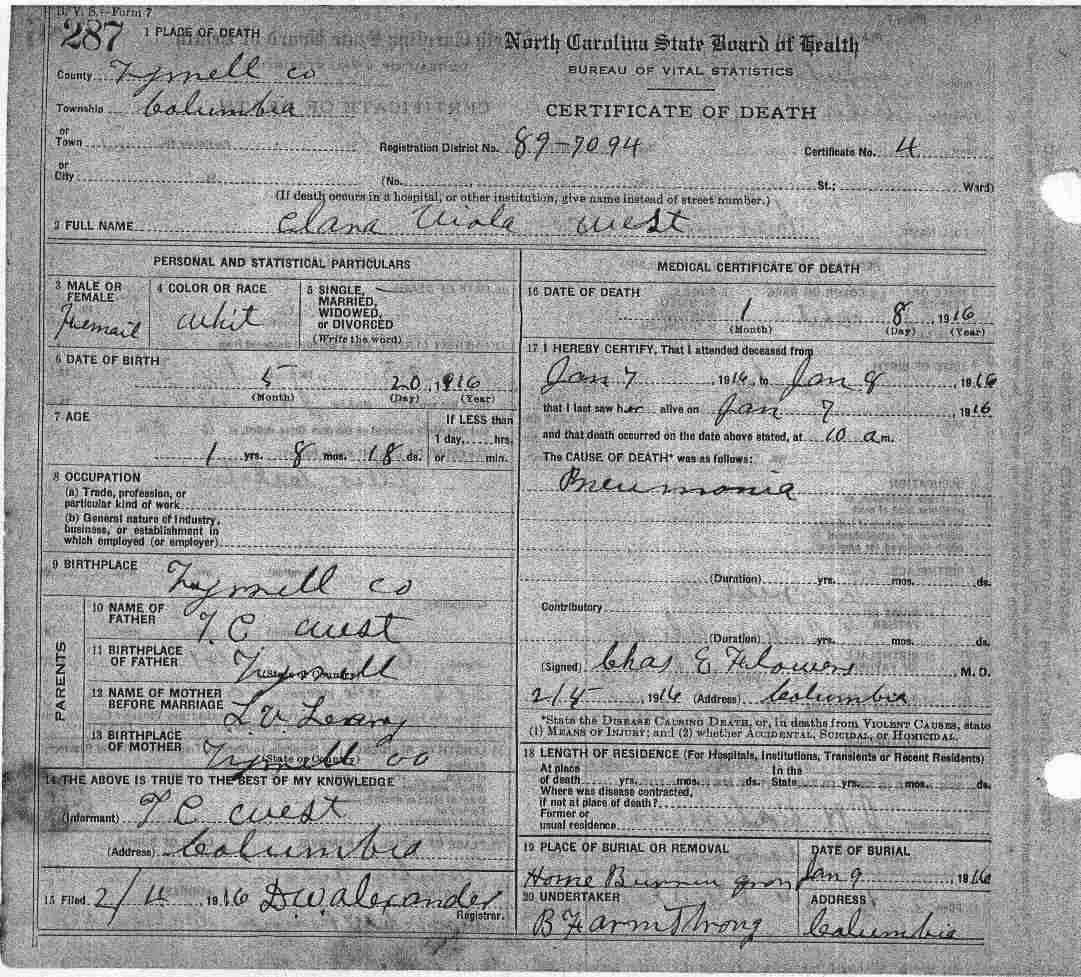 B. V. S.—Form 7
287
1 PLACE OF DEATH
North Carolina State Board of Health
BUREAU OF VITAL STATISTICS
County Tyrrell co
Township Columbia
CERTIFICATE OF DEATH
or
Town
Registration District No. 89-7094
Certificate No. 4
or
City
(No. , St.; Ward)
(If death occurs in a hospital, or other institution, give name instead of street number.)
2 FULL NAME Clara Viola West
PERSONAL AND STATISTICAL PARTICULARS
3 MALE OR FEMALE
Femail
4 COLOR OR RACE
Whit
5 SINGLE, MARRIED, WIDOWED, or DIVORCED
(Write the word)
6 DATE OF BIRTH
5 20, 1916
(Month) (Day) (Year)
7 AGE
If LESS than
1 day, hrs.
or min.
1 yrs. 8 mos. 18 ds.
8 OCCUPATION
(a) Trade, profession, or
particular kind of work
(b) General nature of industry,
business, or establishment in
which employed (or employer)
9 BIRTHPLACE
Tyrrell co
PARENTS
10 NAME OF FATHER
T. C West
11 BIRTHPLACE OF FATHER
Tyrrell
12 NAME OF MOTHER BEFORE MARRIAGE
L. V Leary
13 BIRTHPLACE OF MOTHER
(State or County)
Tyrrell co
14 THE ABOVE IS TRUE TO THE BEST OF MY KNOWLEDGE
(Informant) T C West
(Address) Columbia
15 Filed 2/4 1916 D.W. Alexander
Registrar.
MEDICAL CERTIFICATE OF DEATH
16 DATE OF DEATH
1 8, 1916
(Month) (Day) (Year)
17 I HEREBY CERTIFY, That I attended deceased from
Jan 7, 1916, to Jan 8 1916
that I last saw her alive on Jan 7, 1916
and that death occurred on the date above stated, at 10 a m.
The CAUSE OF DEATH* was as follows:
Pneumonia
(Duration) yrs. mos. ds.
Contributory
(Duration) yrs. mos. ds.
(Signed) Chas E Flowers M. D.
2/5 1916 (Address) Columbia
*State the DISEASE CAUSING DEATH, or, in deaths from VIOLENT CAUSES, state
(1) MEANS OF INJURY; and (2) whether ACCIDENTAL, SUICIDAL, OR HOMICIDAL.
18 LENGTH OF RESIDENCE (For Hospitals, Institutions, Transients or Recent Residents)
At place In the
of death yrs. mos. ds. State yrs. mos. ds.
Where was disease contracted,
if not at place of death?
Former or
usual residence
19 PLACE OF BURIAL OR REMOVAL
Home
DATE OF BURIAL
Jan 9, 1916
20 UNDERTAKER
B F Armstrong
ADDRESS
Columbia